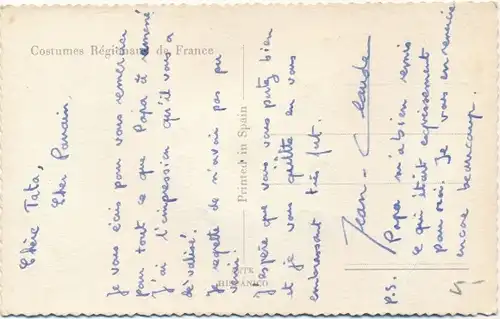 Costumes Régionaux de France
Printed in Spain
HISPANICO
Chère Tata,
Cher Parrain.
Je vous écris pour vous remercier
pour tout ce que Papa a ramené.
J'ai l'impression qu'il vous a
dévalisé.
Je regrette de n'avoir pas pu
venir!
J'espère que vous vous portez bien
et je vous quitte en vous
embrassant très fort.
Jean-Claude
P.S. Papa m'a bien remis
ce qui était expressément
pour moi. Je vous en remercie
encore beaucoup.